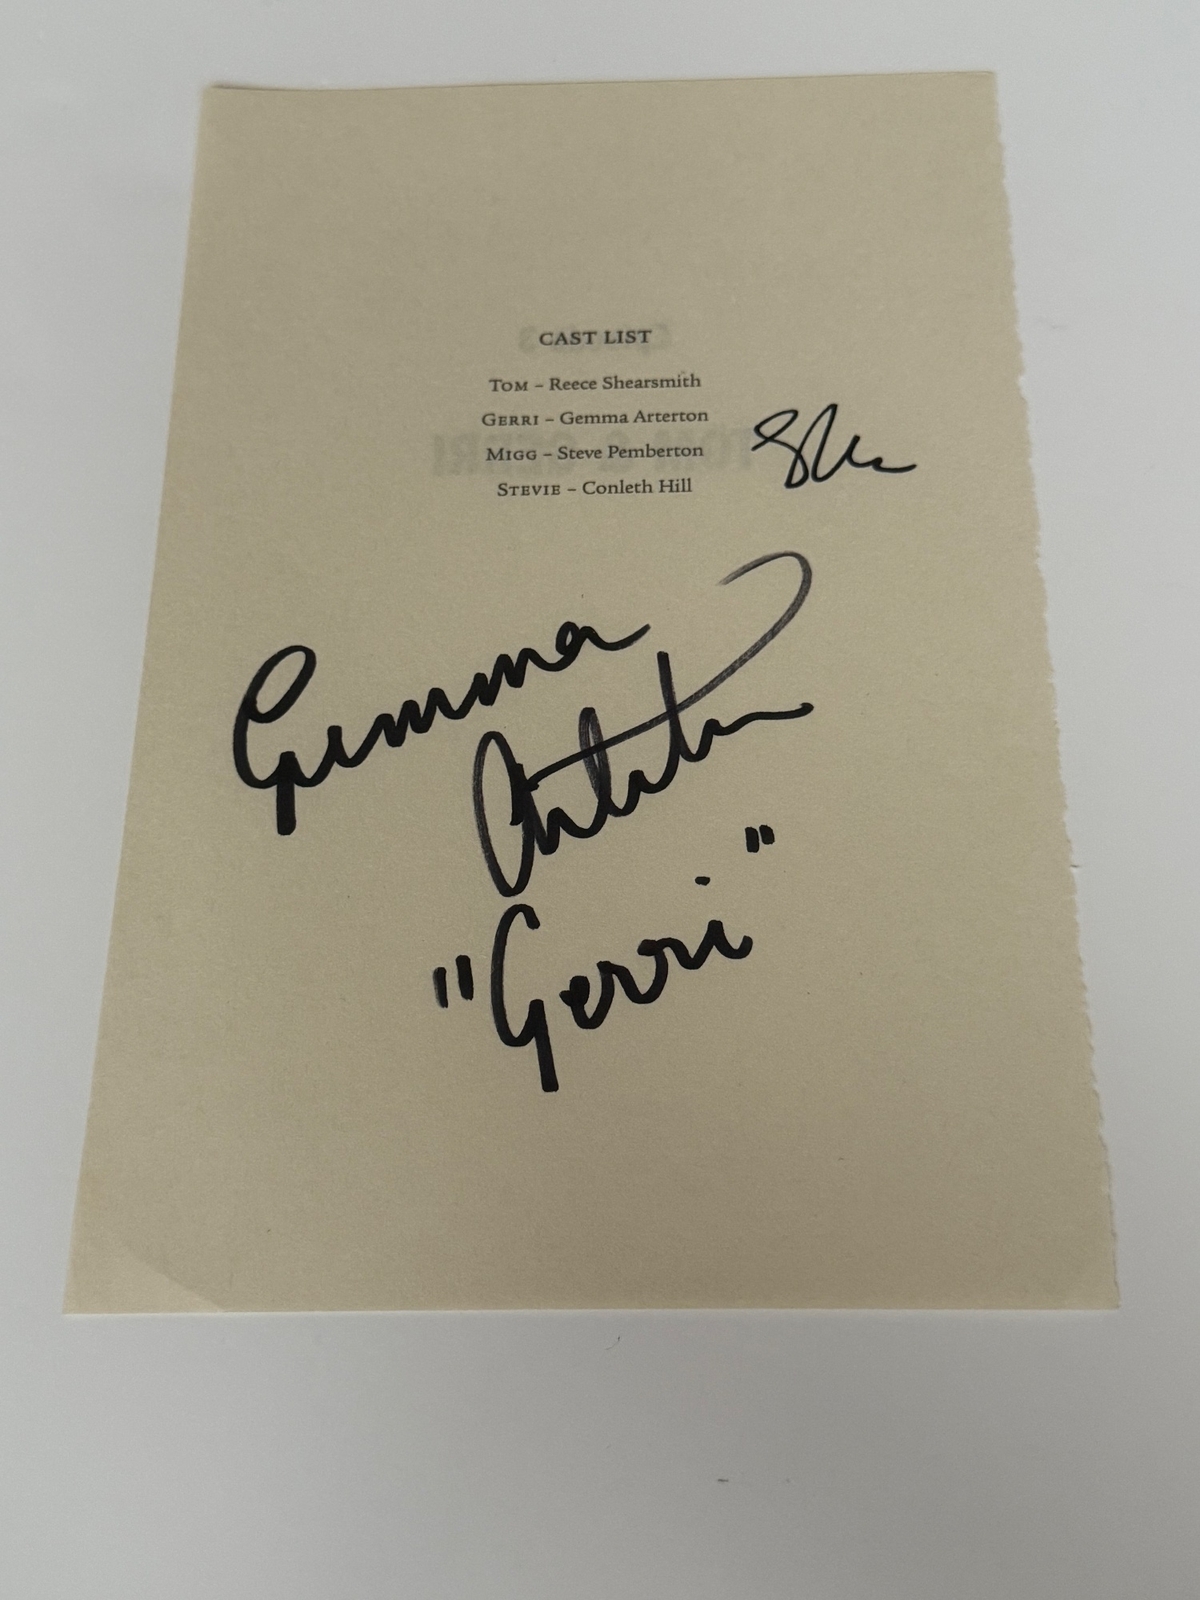 CAST LIST
TOM – Reece Shearsmith
GERRI – Gemma Arterton
MIGG – Steve Pemberton
STEVIE – Conleth Hill
Gemma
Arterton
"Gerri"